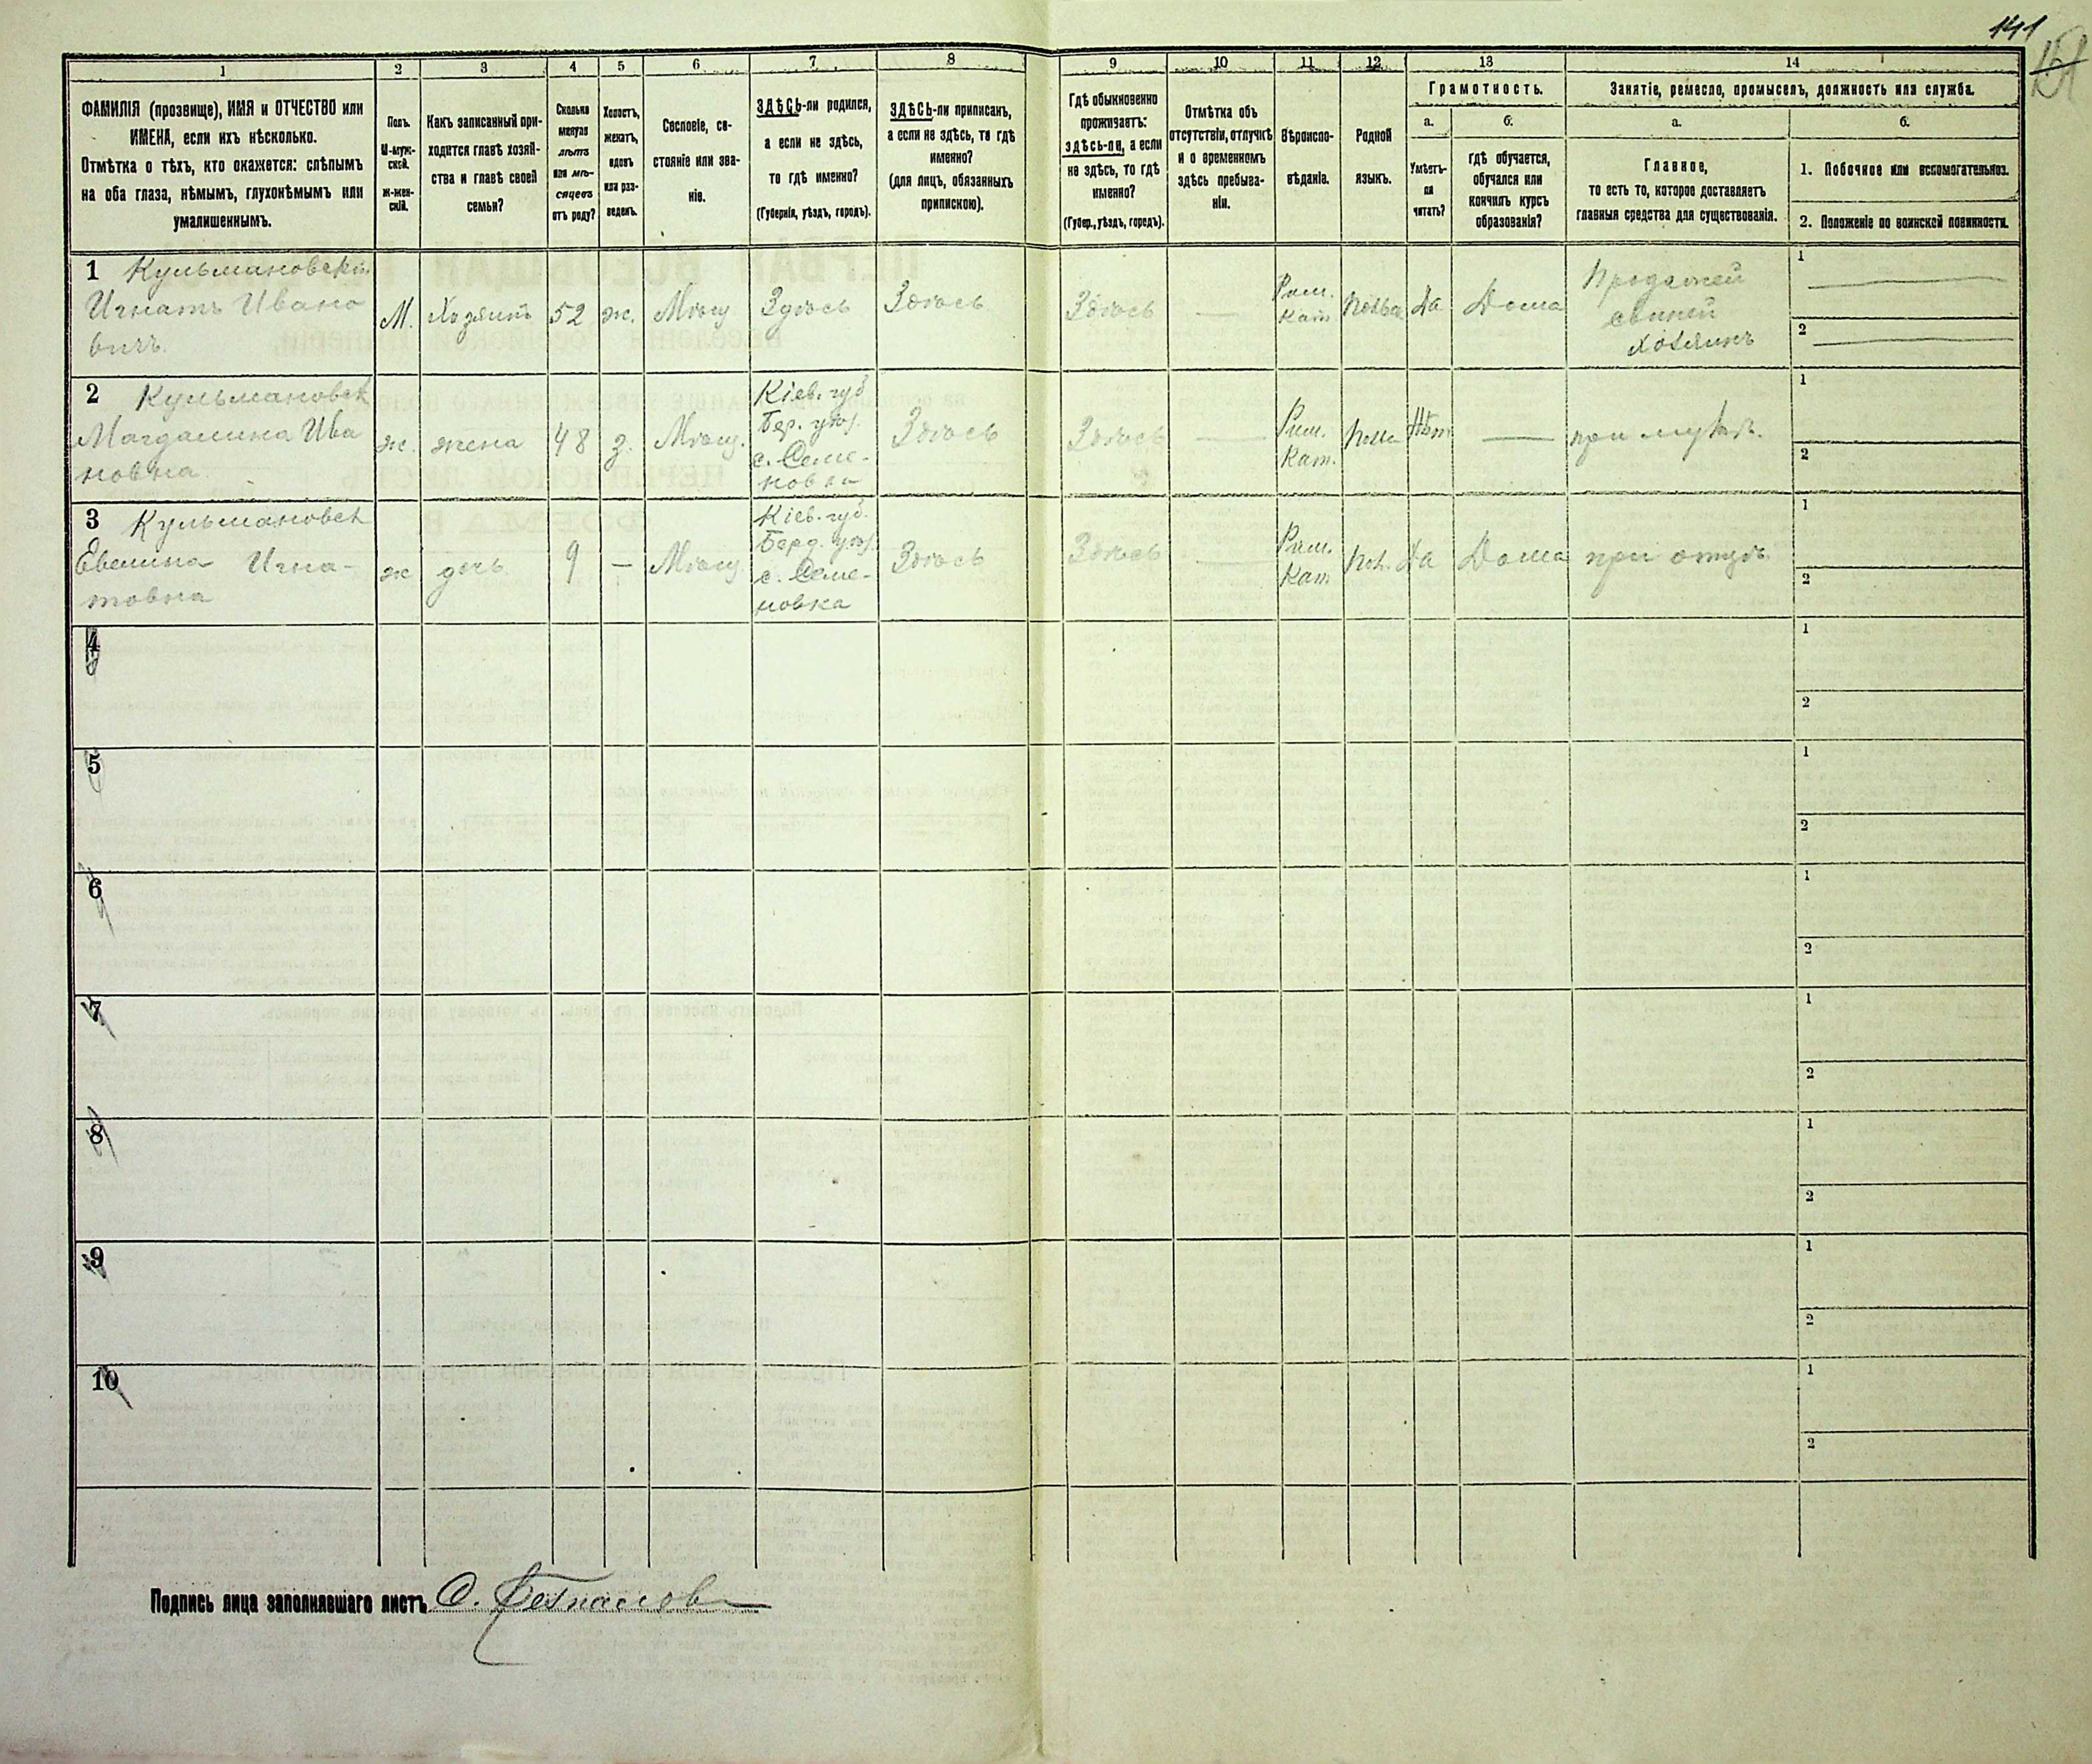 141
1 2 3 4 5 6 7 8 9 10 11 12 13 14
ФАМИЛІЯ (прозвище), ИМЯ и ОТЧЕСТВО или
ИМЕНА, если ихъ нѣсколько.
Отмѣтка о тѣхъ, кто окажется: слѣпымъ
на оба глаза, нѣмымъ, глухонѣмымъ или
умалишеннымъ.
Полъ.
М-муж-
ской.
ж-жен-
скій.
Какъ записанный при-
ходится главѣ хозяй-
ства и главѣ своей
семьи?
Сколько
минуло
лѣтъ
или мѣ-
сяцевъ
отъ роду?
Холостъ,
женатъ,
вдовъ
или раз-
веденъ.
Сословіе, со-
стояніе или зва-
ніе.
ЗДѢСЬ-ли родился,
а если не здѣсь,
то гдѣ именно?
(Губернія, уѣздъ, городъ).
ЗДѢСЬ-ли приписанъ,
а если не здѣсь, то гдѣ
именно?
(для лицъ, обязанныхъ
припискою).
Гдѣ обыкновенно
проживаетъ:
здѣсь-ли, а если
не здѣсь, то гдѣ
именно?
(Губер., уѣздъ, городъ).
Отмѣтка объ
отсутствіи, отлучкѣ
и о временномъ
здѣсь пребыва-
ніи.
Вѣроиспо-
вѣданіе.
Родной
языкъ.
Грамотность.
а.
Умѣетъ-
ли
читать?
б.
гдѣ обучается,
обучался или
кончилъ курсъ
образованія?
Занятіе, ремесло, промыселъ, должность или служба.
а.
Главное,
то есть то, которое доставляетъ
главныя средства для существованія.
б.
1. Побочное или вспомогательное.
2. Положеніе по воинской повинности.
1 Кульмановскій
Игнатъ Ивано
вичъ.
М. Хозяинъ 52 ж. Мѣщ Здѣсь Здѣсь Здѣсь —
Рим.
Кат
Да Дома
Продажей
свиней
хозяинъ
1 —
2 —
2 Кульмановск
Магдалина Ива
новна
ж. жена 48 з. Мѣщ.
Кіев. губ
Бер. уѣз.
с. Семе-
новки
Здѣсь Здѣсь —
Рим.
Кат.
Нѣт — при мужѣ.
1
2
3 Кульмановск
Евелина Игна-
товна
ж дочь 9 — Мѣщ
Кіев. губ.
Берд. уѣз.
с. Семе-
новка
Здѣсь Здѣсь —
Рим.
Кат
Пол. Да Дома при отцѣ
1
2
4
1
2
5
1
2
6
1
2
7
1
2
8
1
2
9
1
2
10
1
2
Подпись лица заполнявшаго листъ